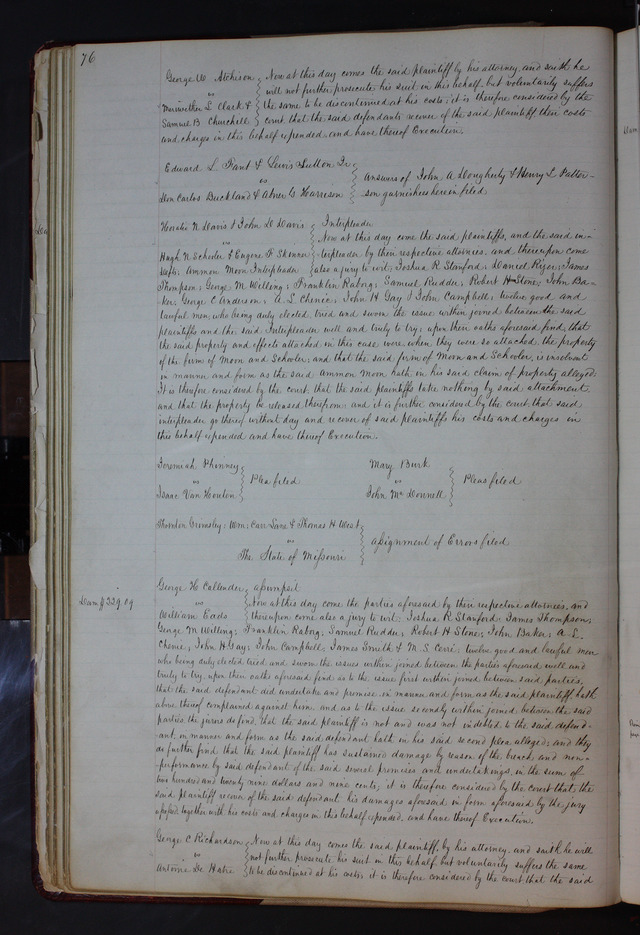 76
George W Atchison } Now at this day comes the said plaintiff by his attorney, and saith he
vs will not further prosecute his suit in this behalf, but voluntarily suffers
Meriwether L Clark & the same to be discontinued at his costs; it is therefore considered by the
Samuel B Churchill court, that the said defendants recover of the said plaintiff their costs
and charges in this behalf expended, and have thereof Execution.
Edward L. Fant & Lewis Sutton Jr
vs Answers of John A Dougherty & Henry L Patter-
Don Carlos Buckland & Abner C Harrison son garnishees herein filed
Horatio N Davis & John D Davis Interpleader
vs Now at this day come the said plaintiffs, and the said in-
Hugh N Schooler & Eugene F Skinner terpleader by their respective attornies, and thereupon come
Defts. Ammon Moon Interpleader also a jury to wit, Joshua R Stanford; Daniel Rizer; James
Thompson; George M Willing; Franklin Raborg; Samuel Rudder; Robert H Stone; John Ba-
ker; George C Anderson; A S Chenie; John H Gay & John Campbell; twelve good and
lawful men, who being duly elected, tried and sworn the issue within joined between the said
plaintiffs and the said Interpleader well and truly to try; upon their oaths aforesaid find, that
the said property and effects attached in this case were when they were so attached, the property
of the firm of Moon and Schooler; and that the said firm of Moon and Schooler, is insolvent
in manner and form as the said Ammon Moon hath in his said claim of property alleged;
It is therefore considered by the court, that the said plaintiffs take nothing by said attachment
and that the property be released therefrom: and it is further considered by the court, that said
interpleader go thereof without day and recover of said plaintiffs his costs and charges in
this behalf expended and have thereof Execution.
Jeremiah Phinney Mary Burk
vs Plea filed vs Pleas filed
Isaac Van Houten John McDonnell
Thornton Grimsley; Wm: Carr Lane & Thomas H West
vs Assignment of Errors filed
The State of Missouri
George H Callender Assumpsit
Dam $229.09 vs Now at this day come the parties aforesaid by their respective attornies, and
William Eads thereupon come also a jury to wit: Joshua R Stanford; James Thompson;
George M Willing; Franklin Raborg; Samuel Rudder; Robert H Stone; John Baker; A S.
Chenie; John H Gay; John Campbell; James Smith & M. S. Cerré; twelve good and lawful men
who being duly elected, tried and sworn the issues within joined between the parties aforesaid well and
truly to try, upon their oaths aforesaid find as to the issue first within joined between said parties,
that the said defendant did undertake and promise in manner and form as the said plaintiff hath
above thereof complained against him, and as to the issue secondly within joined between the said
parties the jurors do find, that the said plaintiff is not and was not indebted to the said defend-
ant in manner and form as the said defendant hath in his said second plea alleged; and they
do further find that the said plaintiff has sustained damage by reason of the breach, and non-
performance by said defendant of the said several promises and undertakings, in the sum of
two hundred and twenty nine dollars and nine cents; it is therefore considered by the court that the
said plaintiff recover of the said defendant his damages aforesaid in form aforesaid by the jury
assessed, together with his costs and charges in this behalf expended, and have thereof Execution.
George C Richardson Now at this day comes the said plaintiff, by his attorney, and saith, he will
vs not further prosecute his suit in this behalf, but voluntarily suffers the same
Antoine De Hatre to be discontinued at his costs; it is therefore considered by the court that the said